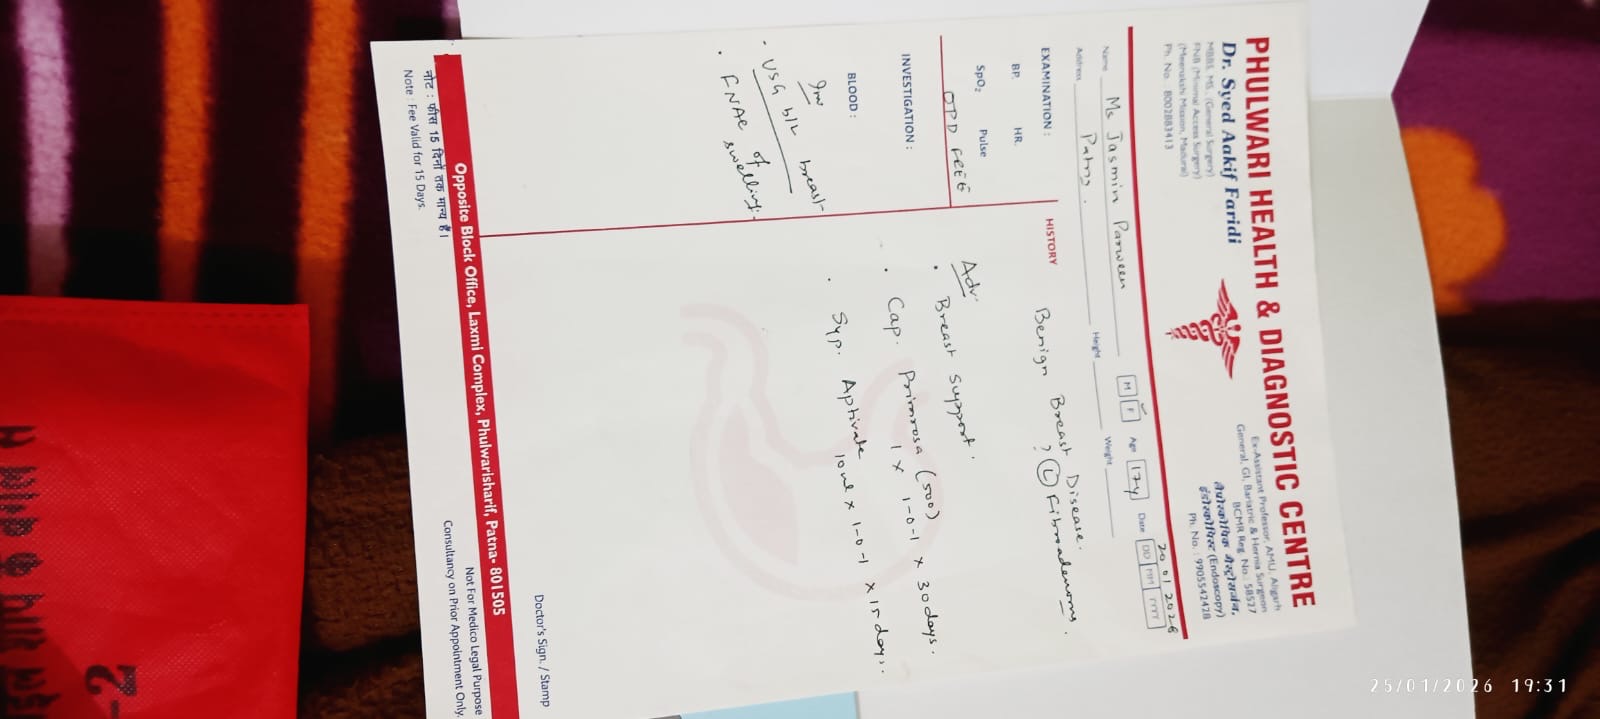 PHULWARI HEALTH & DIAGNOSTIC CENTRE
Dr. Syed Aakif Faridi
MBBS, MS., (General Surgery)
FNB (Minimal Access Surgery)
(Meenakshi Mission, Madurai)
Ph. No. 8002883413
Ex-Assistant Professor, AMU, Aligarh
General, GI, Bariatric & Hernia Surgeon
BCMR Reg. No.: 58527
लेप्रोस्कोपिक
(Endoscopy)
Ph. No. : 9905542428
Name Ms Jasmin Parween M F Age 17y Date 20 01 2026
DD MM YYYY
Address Patna. Height Weight
EXAMINATION :
BP. HR.
SpO₂ Pulse
OPD FREE
INVESTIGATION :
BLOOD :
Inv
· USG b/L breast
· FNAC of swelling.
HISTORY
Benign Breast Disease.
? (L) Fibroadenoma.
Adv.
· Breast support.
· Cap. Primrosa (500)
1 x 1-0-1 x 30 days.
· Syp. Aptivate 10ml x 1-0-1 x 15 days.
Doctor's Sign. / Stamp
Opposite Block Office, Laxmi Complex, Phulwarisharif, Patna- 801505
नोट : फीस 15 दिनों तक मान्य है।
Note : Fee Valid for 15 Days.
Not For Medico Legal Purpose
Consultancy on Prior Appointment Only.
25/01/2026 19:31